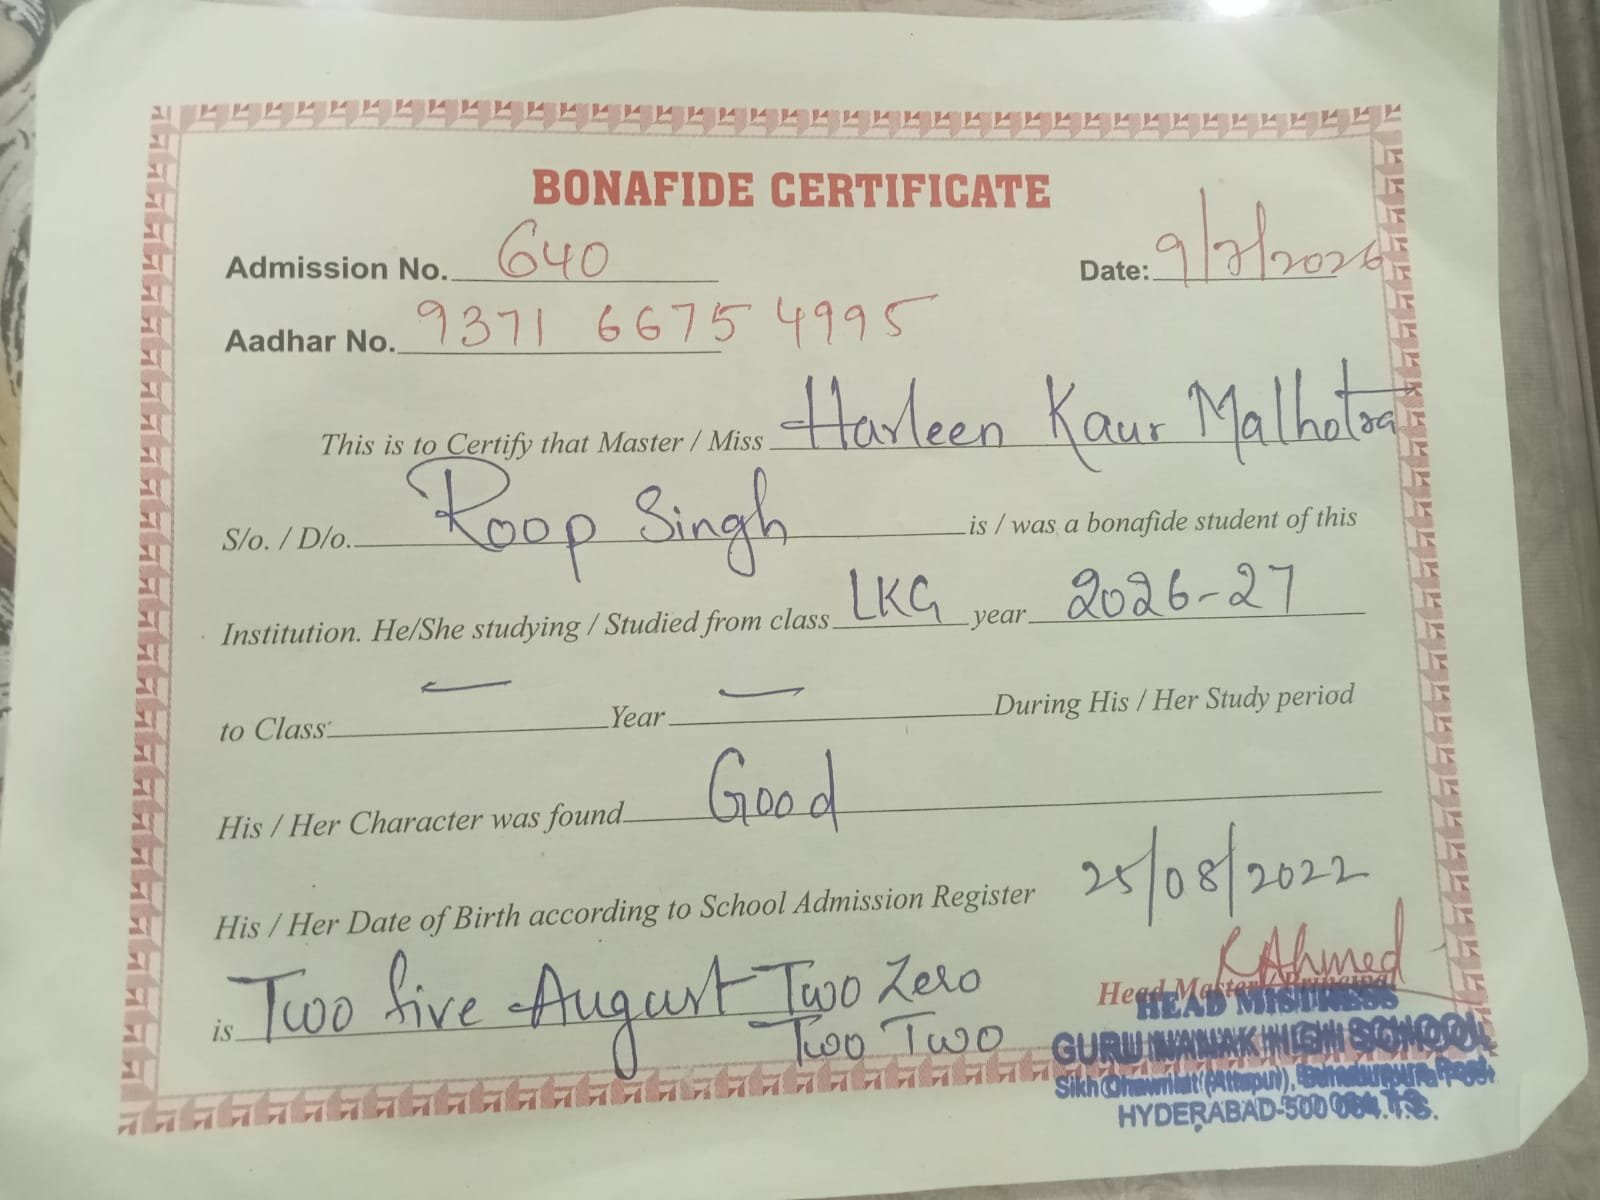 BONAFIDE CERTIFICATE
Admission No. 640 Date: 9/7/2026
Aadhar No. 9371 6675 4995
This is to Certify that Master / Miss Harleen Kaur Malhotra
S/o. / D/o. Roop Singh is / was a bonafide student of this
Institution. He/She studying / Studied from class LKG year 2026-27
to Class: — Year — During His / Her Study period
His / Her Character was found Good
His / Her Date of Birth according to School Admission Register 25/08/2022
is Two five August Two Zero
Two Two
KAhmed
Head Master / Principal
HEAD MISTRESS
GURU NANAK HIGH SCHOOL
Sikh (Attapur),
HYDERABAD-500 T.S.